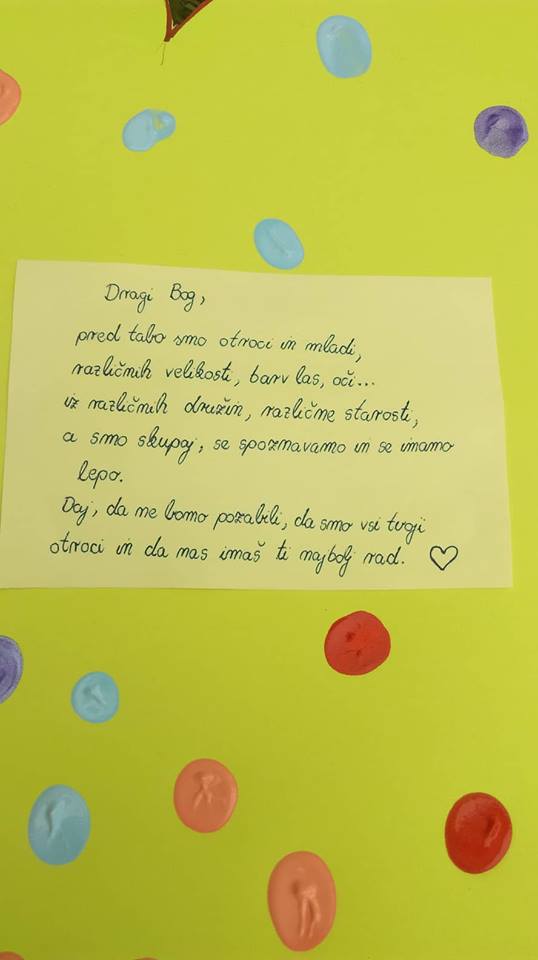 Dragi Bog,
pred tabo smo otroci in mladi,
različnih velikosti, barv las, oči...
iz različnih družin, različne starosti,
a smo skupaj, se spoznavamo in se imamo
lepo.
Daj, da ne bomo pozabili, da smo vsi tvoji
otroci in da nas imaš ti najbolj rad. ♡